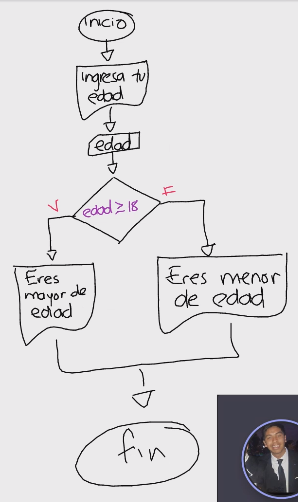 Inicio
Ingresa tu
edad
edad
edad ≥ 18
V
F
Eres
mayor de
edad
Eres menor
de edad
fin